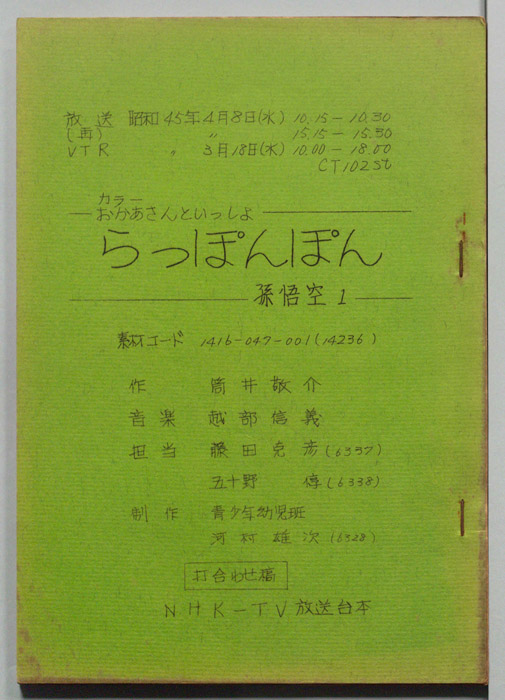 放送 昭和45年4月8日(水) 10.15－10.30
(再) 〃 15.15－15.30
VTR 〃 3月18日(水) 10.00－18.00
CT102St
カラー
おかあさんといっしょ
らっぽんぽん
孫悟空 1
素材コード 1416-047-001(14236)
作 筒井敬介
音楽 越部信義
担当 藤田克彦(6337)
五十野 惇(6338)
制作 青少年幼児班
河村雄次(6328)
打合わせ稿
NHK－TV放送台本